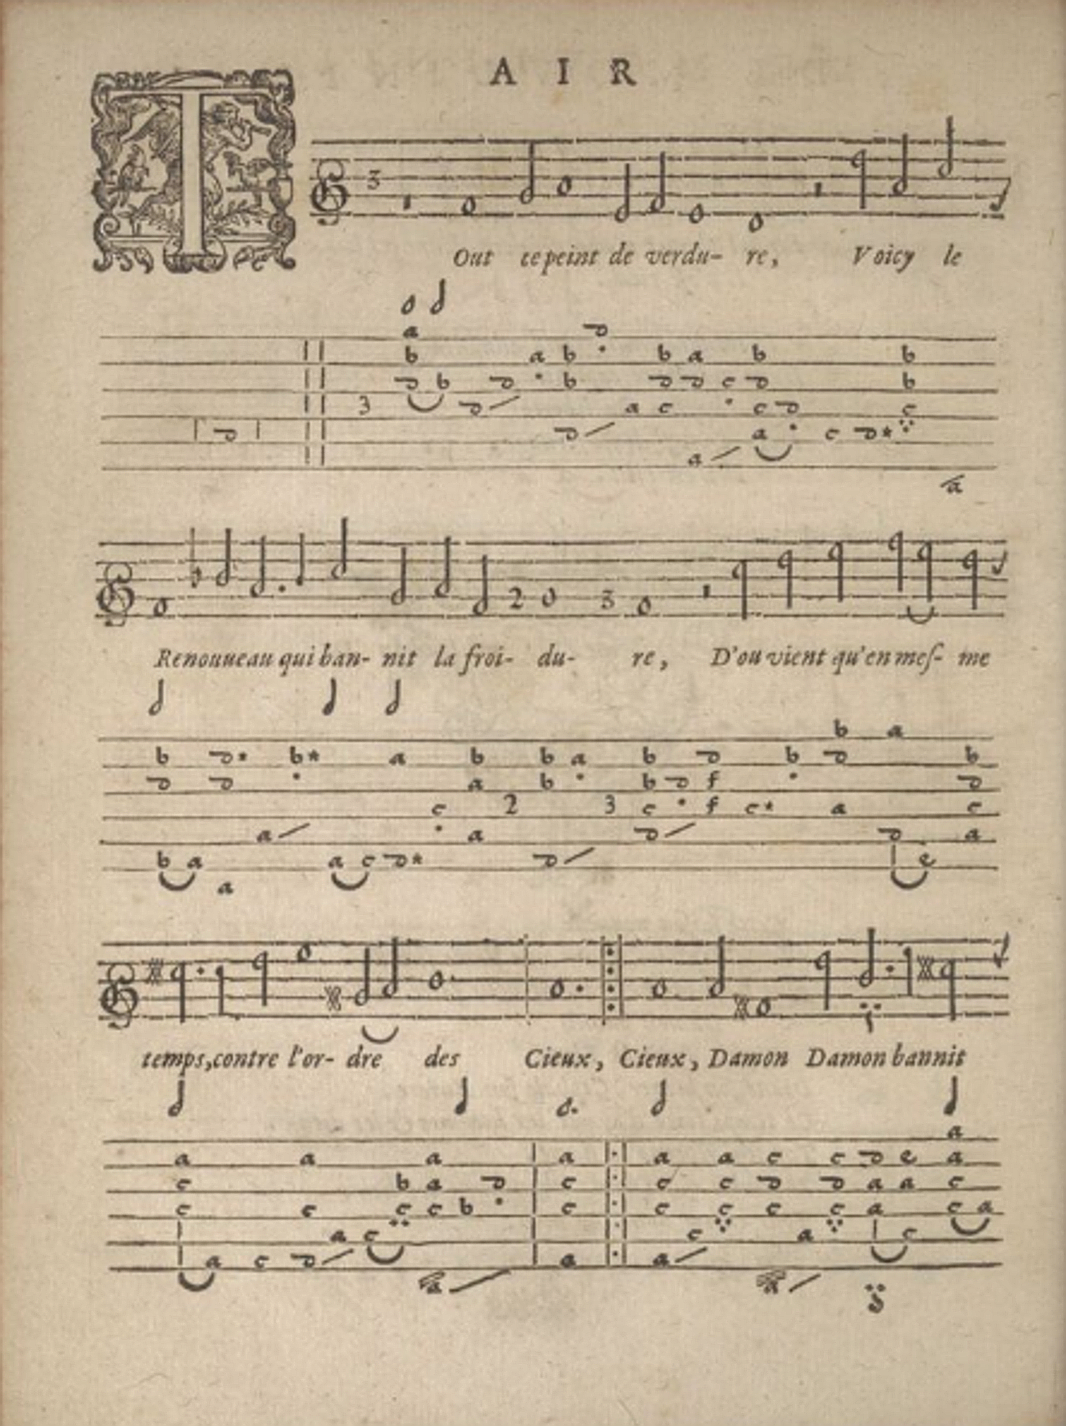 AIR
TOut ce peint de verdu- re, Voicy le
Renouueau qui ban- nit la froi- du- re, D'ou vient qu'en mes- me
temps, contre l'or- dre des Cieux, Cieux, Damon Damon bannit